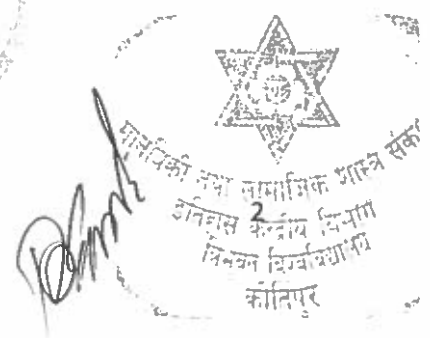 मानविकी तथा सामाजिक शास्त्र
2
इतिहास केन्द्रीय विभाग
त्रिभुवन विश्वविद्यालय
कीर्तिपुर